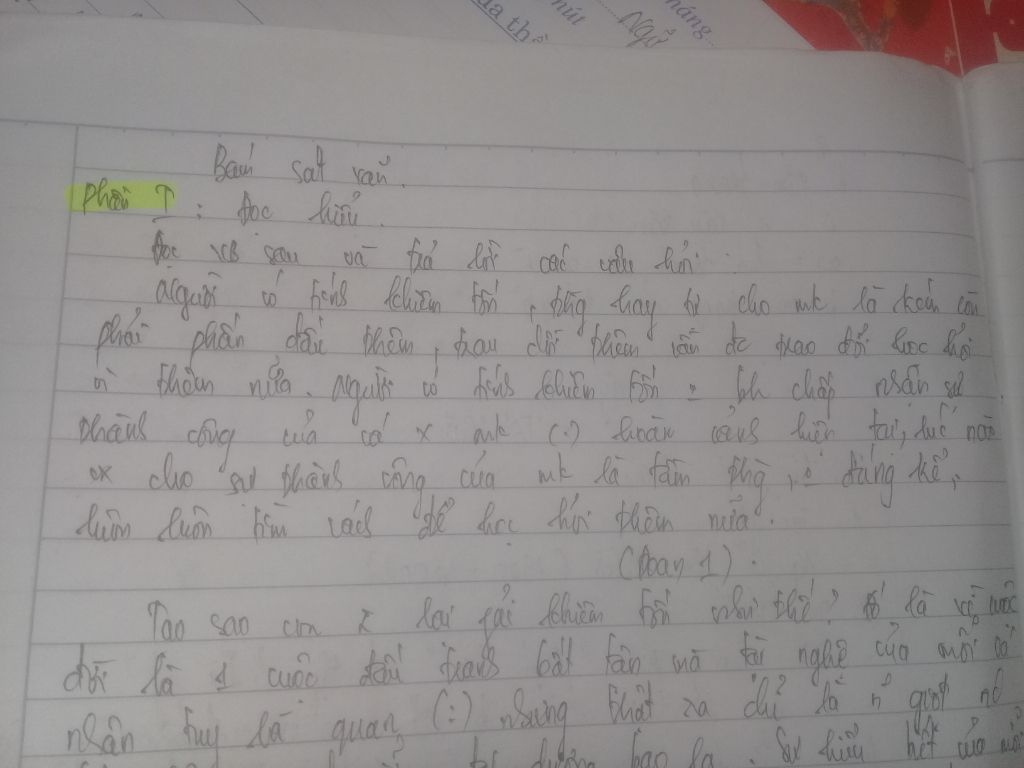 háng
nút
Ngữ
ủa th
Bám sát văn.
Phần I : Đọc hiểu.
Đọc vb sau và trả lời các câu hỏi:
Người có tính khiêm tốn, thường hay tự cho mk là kém cần
phải phấn đấu thêm, trau dồi thêm cần đc trao đổi học hỏi
thêm nữa. Người có tính khiêm tốn chấp nhận sự
thành công của cá mk (.) hoàn cảnh hiện tại, lúc nào
cx cho sự thành công của mk là tầm thg, đáng kể,
luôn luôn tìm cách để học hỏi thêm nữa.
(Đoạn 1).
Tại sao con lại phải khiêm tốn như thế? Đó là vì cuộc
đời là 1 cuộc đấu tranh bất tận mà tài nghệ của mỗi cá
nhân tuy là quan (:) nhưng thật ra chỉ là giọt
bao la. Sự hiểu biết của mỗi